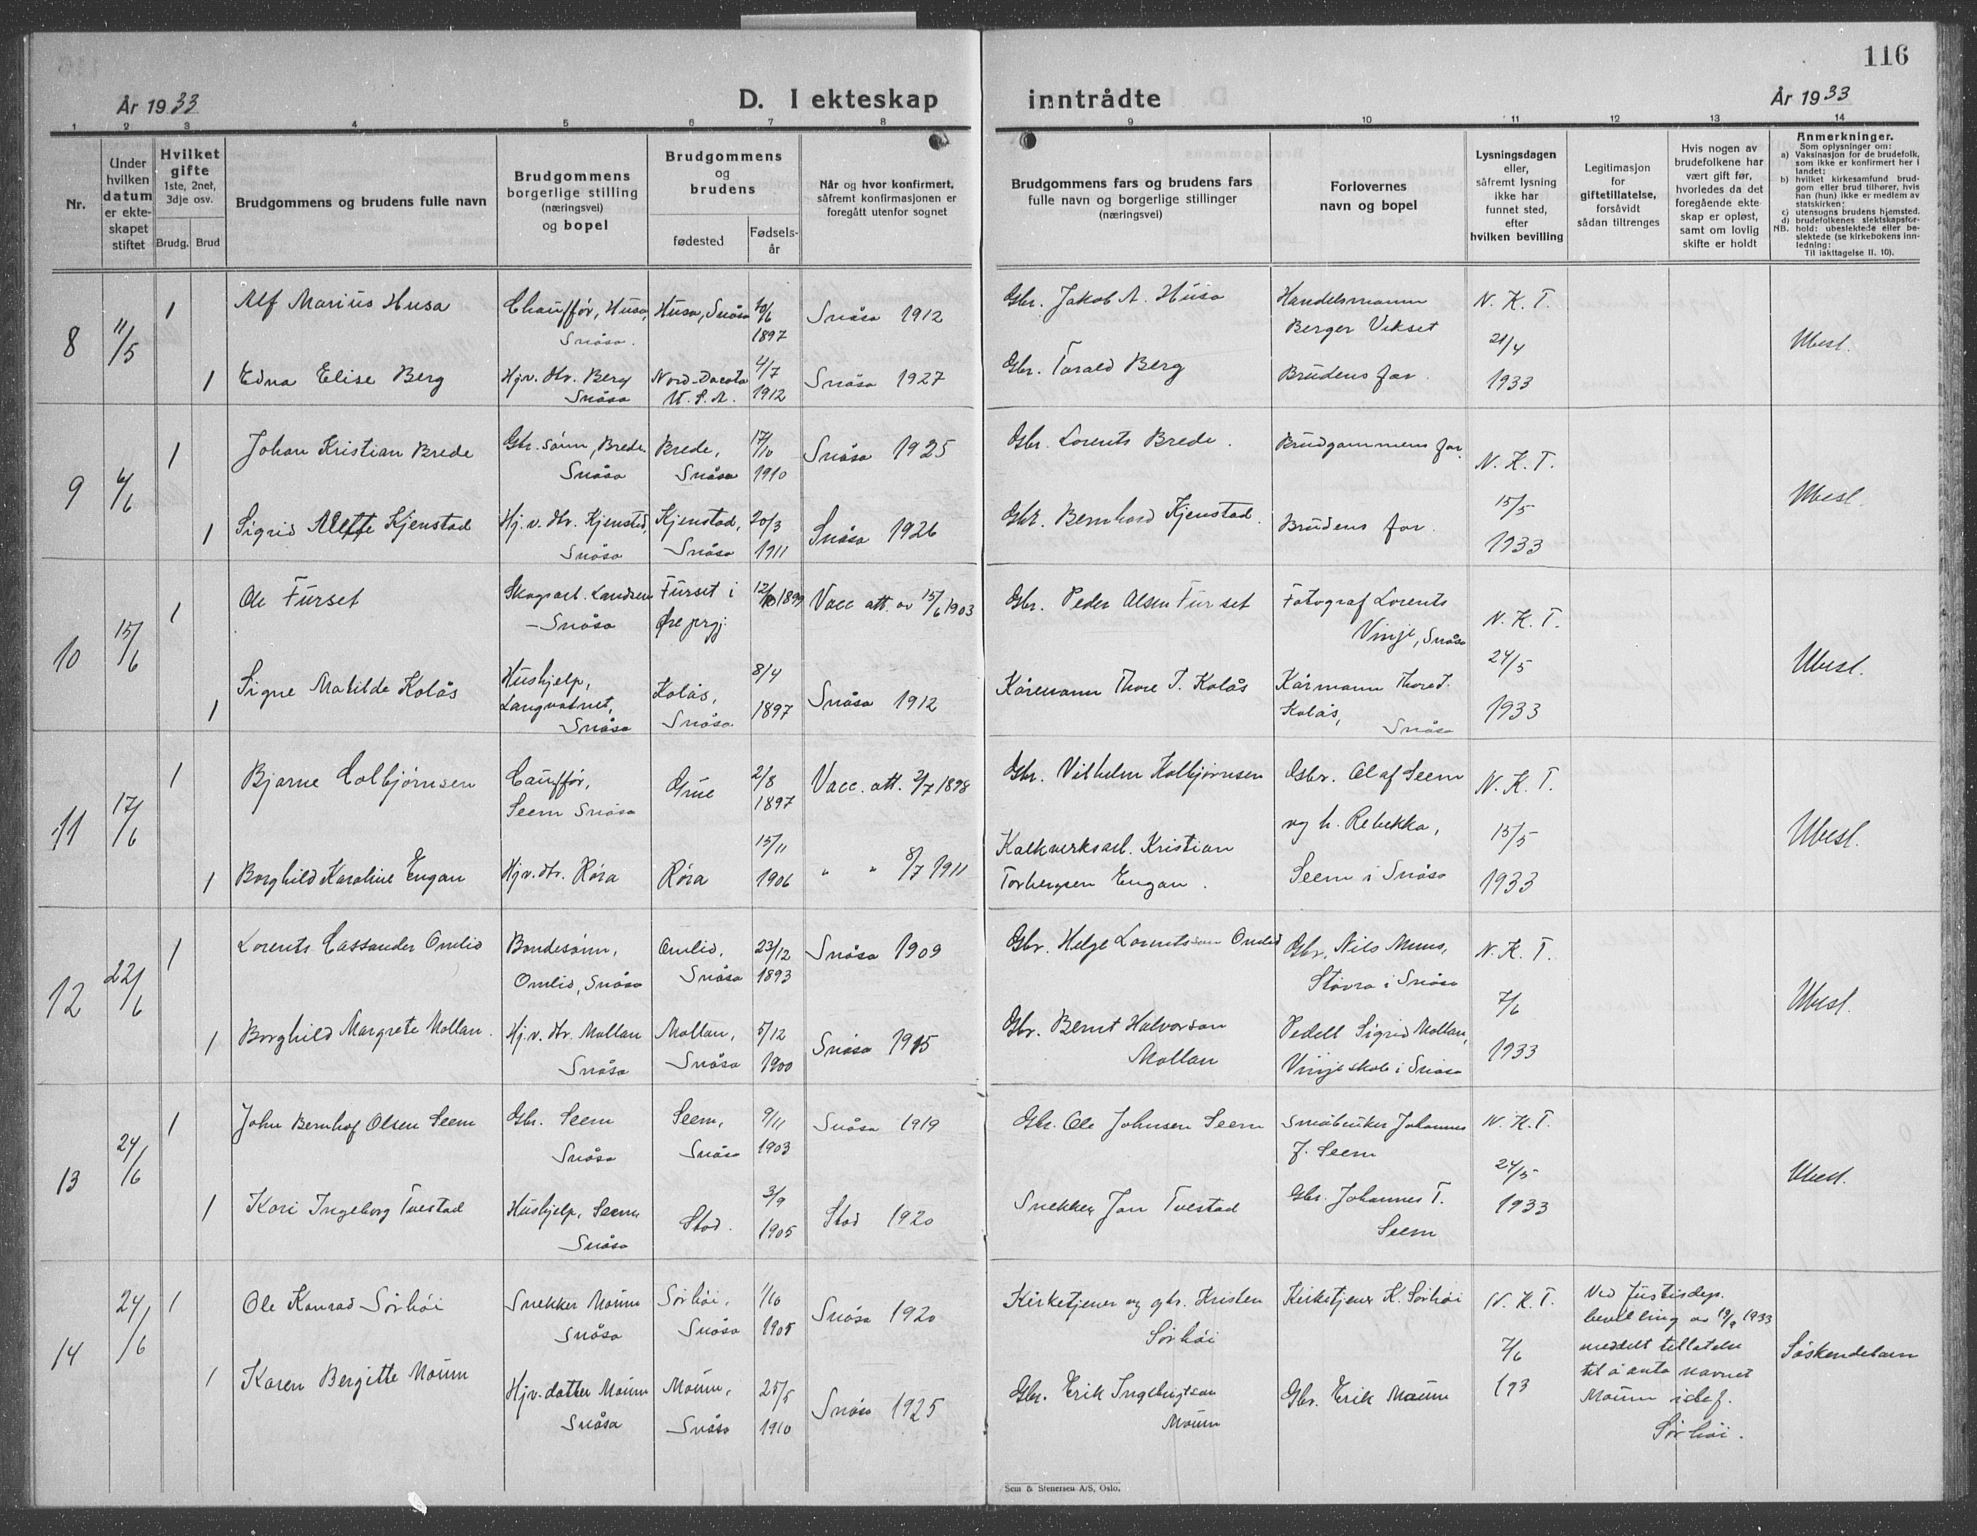 116
År 1933
D. I ekteskap inntrådte
År 1933
1 2 3 4 5 6 7 8 9 10 11 12 13 14
Nr.
Under hvilken datum er ekteskapet stiftet
Hvilket gifte
1ste, 2net, 3dje osv.
Brudg. Brud
Brudgommens og brudens fulle navn
Brudgommens borgerlige stilling (næringsvei) og bopel
Brudgommens og brudens
fødested
Fødselsår
Når og hvor konfirmert, såfremt konfirmasjonen er foregått utenfor sognet
Brudgommens fars og brudens fars fulle navn og borgerlige stillinger (næringsvei)
Forlovernes navn og bopel
Lysningsdagen eller, såfremt lysning ikke har funnet sted, efter hvilken bevilling
Legitimasjon for giftetillatelse, forsåvidt sådan tiltrenges
Hvis nogen av brudefolkene har vært gift før, hvorledes da det foregående ekteskap er opløst, samt om lovlig skifte er holdt
Anmerkninger.
Som oplysninger om:
a) Vaksinasjon for de brudefolk, som ikke er konfirmert her i landet;
b) hvilket kirkesamfund brudgom eller brud tilhører, hvis han (hun) ikke er medlem av statskirken;
c) utensogns brudens hjemsted.
d) brudefolkenes slektskapsforhold: ubeslektede eller beslektede (se kirkebokens innledning:
NB. Til iakttagelse II. 10).
8 11/5 1 Alf Marius Husa Chauffør, Husa, Snåsa. Husa, Snåsa 10/6 1897 Snåsa 1912 Gbr. Jakob A. Husa Handelsmann Berger Vekset N. K. T. 21/4 1933 Ubesl.
1 Edna Elise Berg Hjv. dtr. Berg Snåsa Nord-Dacota U. S. A. 4/7 1912 Snåsa 1927 Gbr. Torald Berg Brudens far.
9 4/6 1 Johan Kristian Brede Gbr. sønn, Brede Snåsa Brede, Snåsa 17/10 1910 Snåsa 1925 Gbr. Lorents Brede. Brudgommens far. N. K. T. 15/5 1933 Ubesl.
1 Sigrid Alette Kjenstad Hj. v. dtr. Kjenstad, Snåsa Kjenstad, Snåsa 20/3 1911 Snåsa 1926 Gbr. Bernhard Kjenstad. Brudens far.
10 15/6 1 Ole Furset Skogsarb. Landsem Snåsa Furset i Øre prgj. 12/10 1899 Vacc. att. av 15/6 1903 Gbr. Peder Olsen Furset Fotograf Lorents Vinje, Snåsa N. K. T. 24/5 1933 Ubesl.
1 Signe Matilde Kolås Hushjelp, Langvatnet, Snåsa Kolås, Snåsa 8/4 1897 Snåsa 1912 Kårmann Thore T. Kolås Kårmann Thore T. Kolås, Snåsa
11 17/6 1 Bjarne Colbjørnsen Cauffør, Seem Snåsa Grue 2/8 1897 Vacc. att. 2/7 1898 Gbr. Vilhelm Kolbjørnsen Gbr. Olaf Seem og h. Rebekka, Seem i Snåsa N. K. T. 15/5 1933 Ubesl.
1 Borghild Karoline Engan Hjv. dtr. Røra Røra 15/11 1906 " " 8/7 1911 Kalkverksarb. Kristian Torbergsen Engan.
12 22/6 1 Lorents Cassander Omlid Bondesønn, Omlid, Snåsa Omlid, Snåsa 23/12 1893 Snåsa 1909 Gbr. Helge Lorentsson Omlid Gbr. Nils Muus, Støvra i Snåsa N. K. T. 7/6 1933 Ubesl.
1 Borghild Margrete Mollan. Hj. v. dtr. Mollan Snåsa Mollan, Snåsa 5/12 1900 Snåsa 1915 Gbr. Bernt Halvorson Mollan Pedell Sigrid Mollan, Vinje skole i Snåsa
13 24/6 1 John Bernhof Olsen Seem Gbr. Seem Snåsa Seem, Snåsa 9/11 1903 Snåsa 1919 Gbr. Ole Johnsen Seem Småbruker Johannes J. Seem N. K. T. 24/5 1933 Ubesl.
1 Kari Ingeborg Tvestad Hushjelp, Seem Snåsa Stod. 3/9 1905 Stod 1920 Snekker Jon Tvestad Gbr. Johannes T. Seem
14 24/6 1 Ole Konrad Sørhøi Snekker Moum Snåsa Sørhøi, Snåsa 1/10 1905 Snåsa 1920 Kirketjener og gbr. Kristen Sørhøi Kirketjener K. Sørhøi N. K. T. 7/6 193 Ved Justisdep. bevilling av 19/9 1933 meddelt tillatelse til å anta navnet Moum istef. Sørhøi. Søskendebarn
1 Karen Bergitte Moum Hjv. datter Moum Snåsa Moum, Snåsa 25/5 1910 Snåsa 1925 Gbr. Erik Ingebrigtson Moum Gbr. Erik Moum
Sem & Stenersen A/S, Oslo.